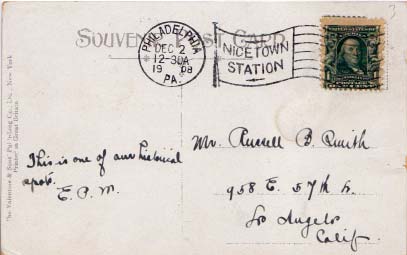 SOUVENIR POST CARD
PHILADELPHIA
DEC 2
12-30A
1908
PA.
NICETOWN
STATION
The Valentine & Sons' Publishing Co., Ltd., New York
Printed in Great Britain
This is one of our historical
spots.
E. P. M.
Mr. Russell B. Smith
958 E. 57th St.
Los Angeles
Calif.